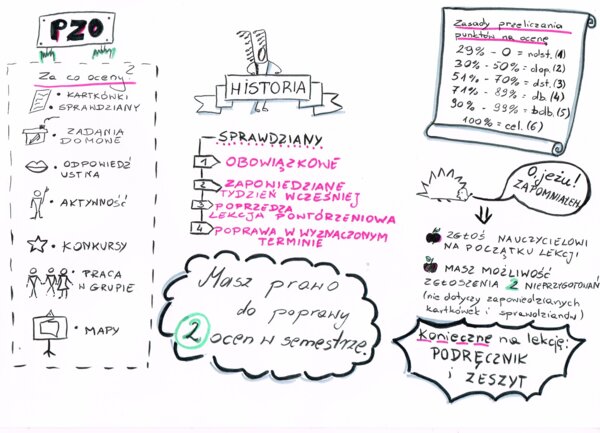 PZO
Za co oceny?
• KARTKÓWKI
• SPRAWDZIANY
• ZADANIA
DOMOWE
• ODPOWIEDŹ
USTNA
• AKTYWNOŚĆ
• KONKURSY
• PRACA
W GRUPIE
• MAPY
HISTORIA
SPRAWDZIANY
1 OBOWIĄZKOWE
2 ZAPOWIEDZIANE
TYDZIEŃ WCZEŚNIEJ
3 POPRZEDZA
LEKCJA POWTÓRZENIOWA
4 POPRAWA W WYZNACZONYM
TERMINIE
Masz prawo
do poprawy
2 ocen w semestrze.
Zasady przeliczania
punktów na ocenę
29% - 0 = ndst. (1)
30% - 50% = dop. (2)
51% - 70% = dst. (3)
71% - 89% = db. (4)
90% - 99% = bdb. (5)
100% = cel. (6)
O, jeżu!
ZAPOMNIAŁEM
ZGŁOŚ NAUCZYCIELOWI
NA POCZĄTKU LEKCJI
MASZ MOŻLIWOŚĆ
ZGŁOSZENIA 2 NIEPRZYGOTOWAŃ
(nie dotyczy zapowiedzianych
kartkówek i sprawdzianów)
Konieczne na lekcję:
PODRĘCZNIK
i ZESZYT